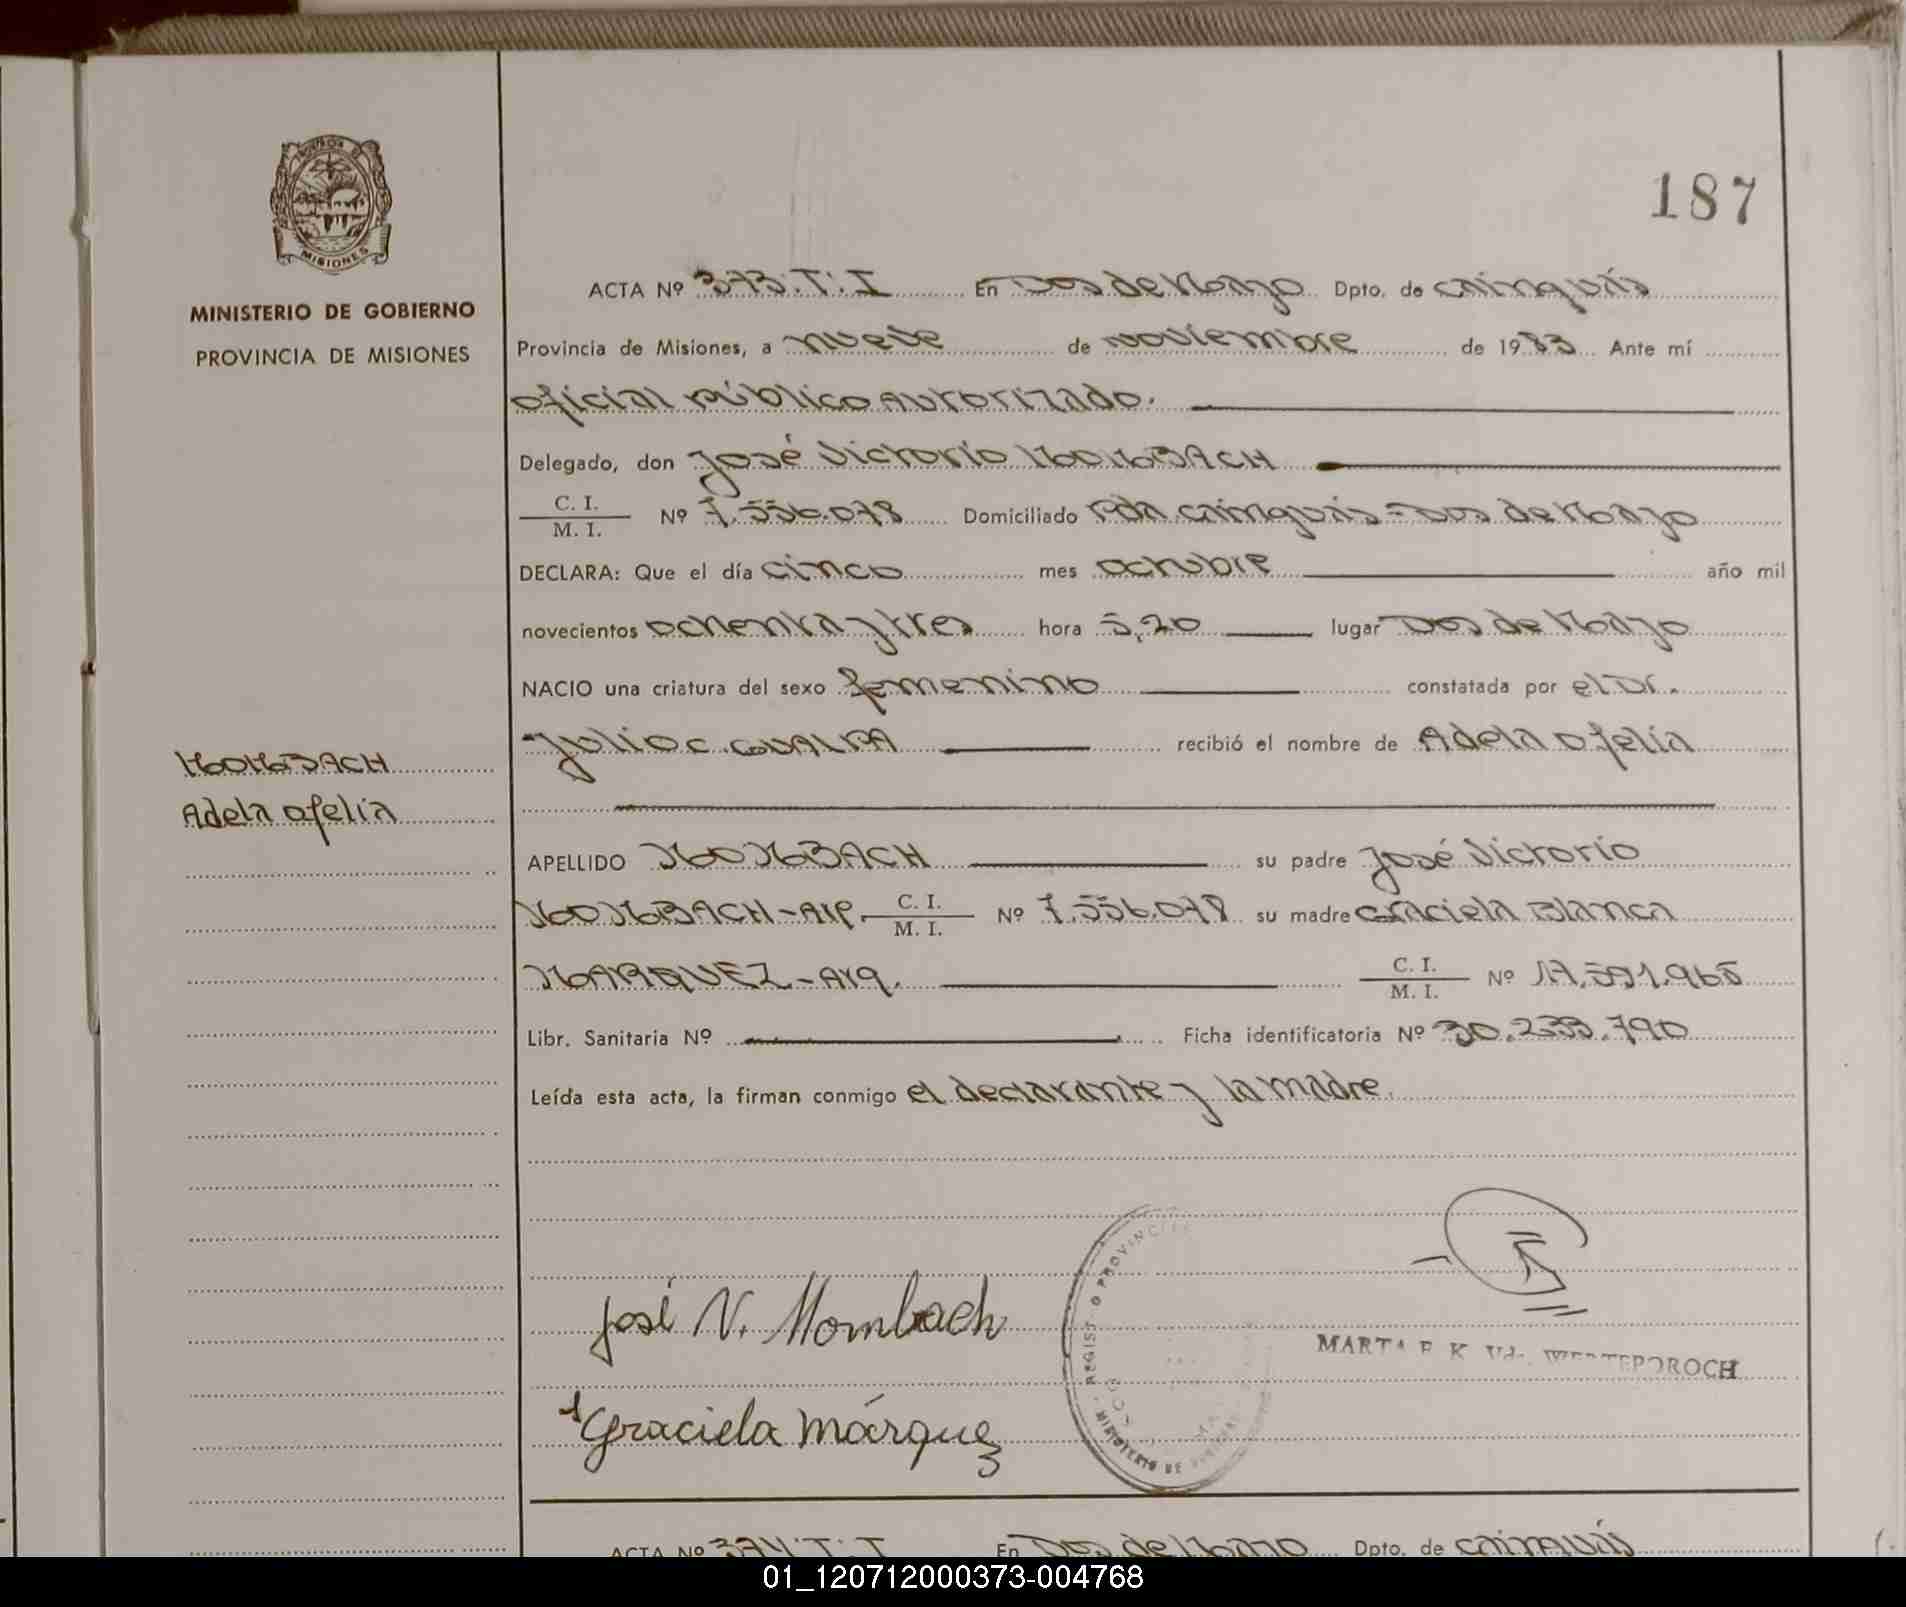 187
PROVINCIA DE
MISIONES
MINISTERIO DE GOBIERNO
PROVINCIA DE MISIONES
ACTA Nº 373.T:I En Dos de Mayo Dpto. de cainguás
Provincia de Misiones, a nueve de noviembre de 1983 Ante mí
oficial público autorizado.
Delegado, don José Victorio MOMBACH
C. I.
M. I.
Nº 7.556.078 Domiciliado Pda cainguás = Dos de Mayo
DECLARA: Que el día cinco mes octubre año mil
novecientos ochenta y tres hora 5,20 lugar Dos de Mayo
NACIO una criatura del sexo femenino constatada por el Dr.
Julio C. GUALPA recibió el nombre de Adela Ofelia
MOMBACH
Adela Ofelia
APELLIDO MOMBACH su padre José Victorio
MOMBACH-Arg. C. I.
M. I.
Nº 7.556.078 su madre Graciela Blanca
MARQUEZ-Arg. C. I.
M. I.
Nº 17.591.965
Libr. Sanitaria Nº Ficha identificatoria Nº 30.233.790
Leída esta acta, la firman conmigo el declarante y la madre.
José V. Mombach
Graciela Márquez
REGIST O PROVINCI
MINISTERIO DE
MARTA E K Vda.
ACTA Nº 374.T:I En Dos de Mayo Dpto. de cainguás
01_120712000373-004768